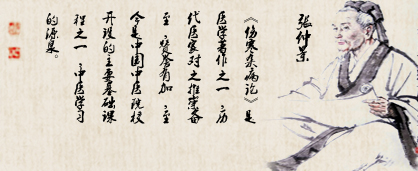 张仲景
《伤寒杂病论》是
医学著作之一，历
代医家对之推崇备
至，赞誉有加，至
今是中国中医院校
开设的主要基础课
程之一，中医学习
的源泉。